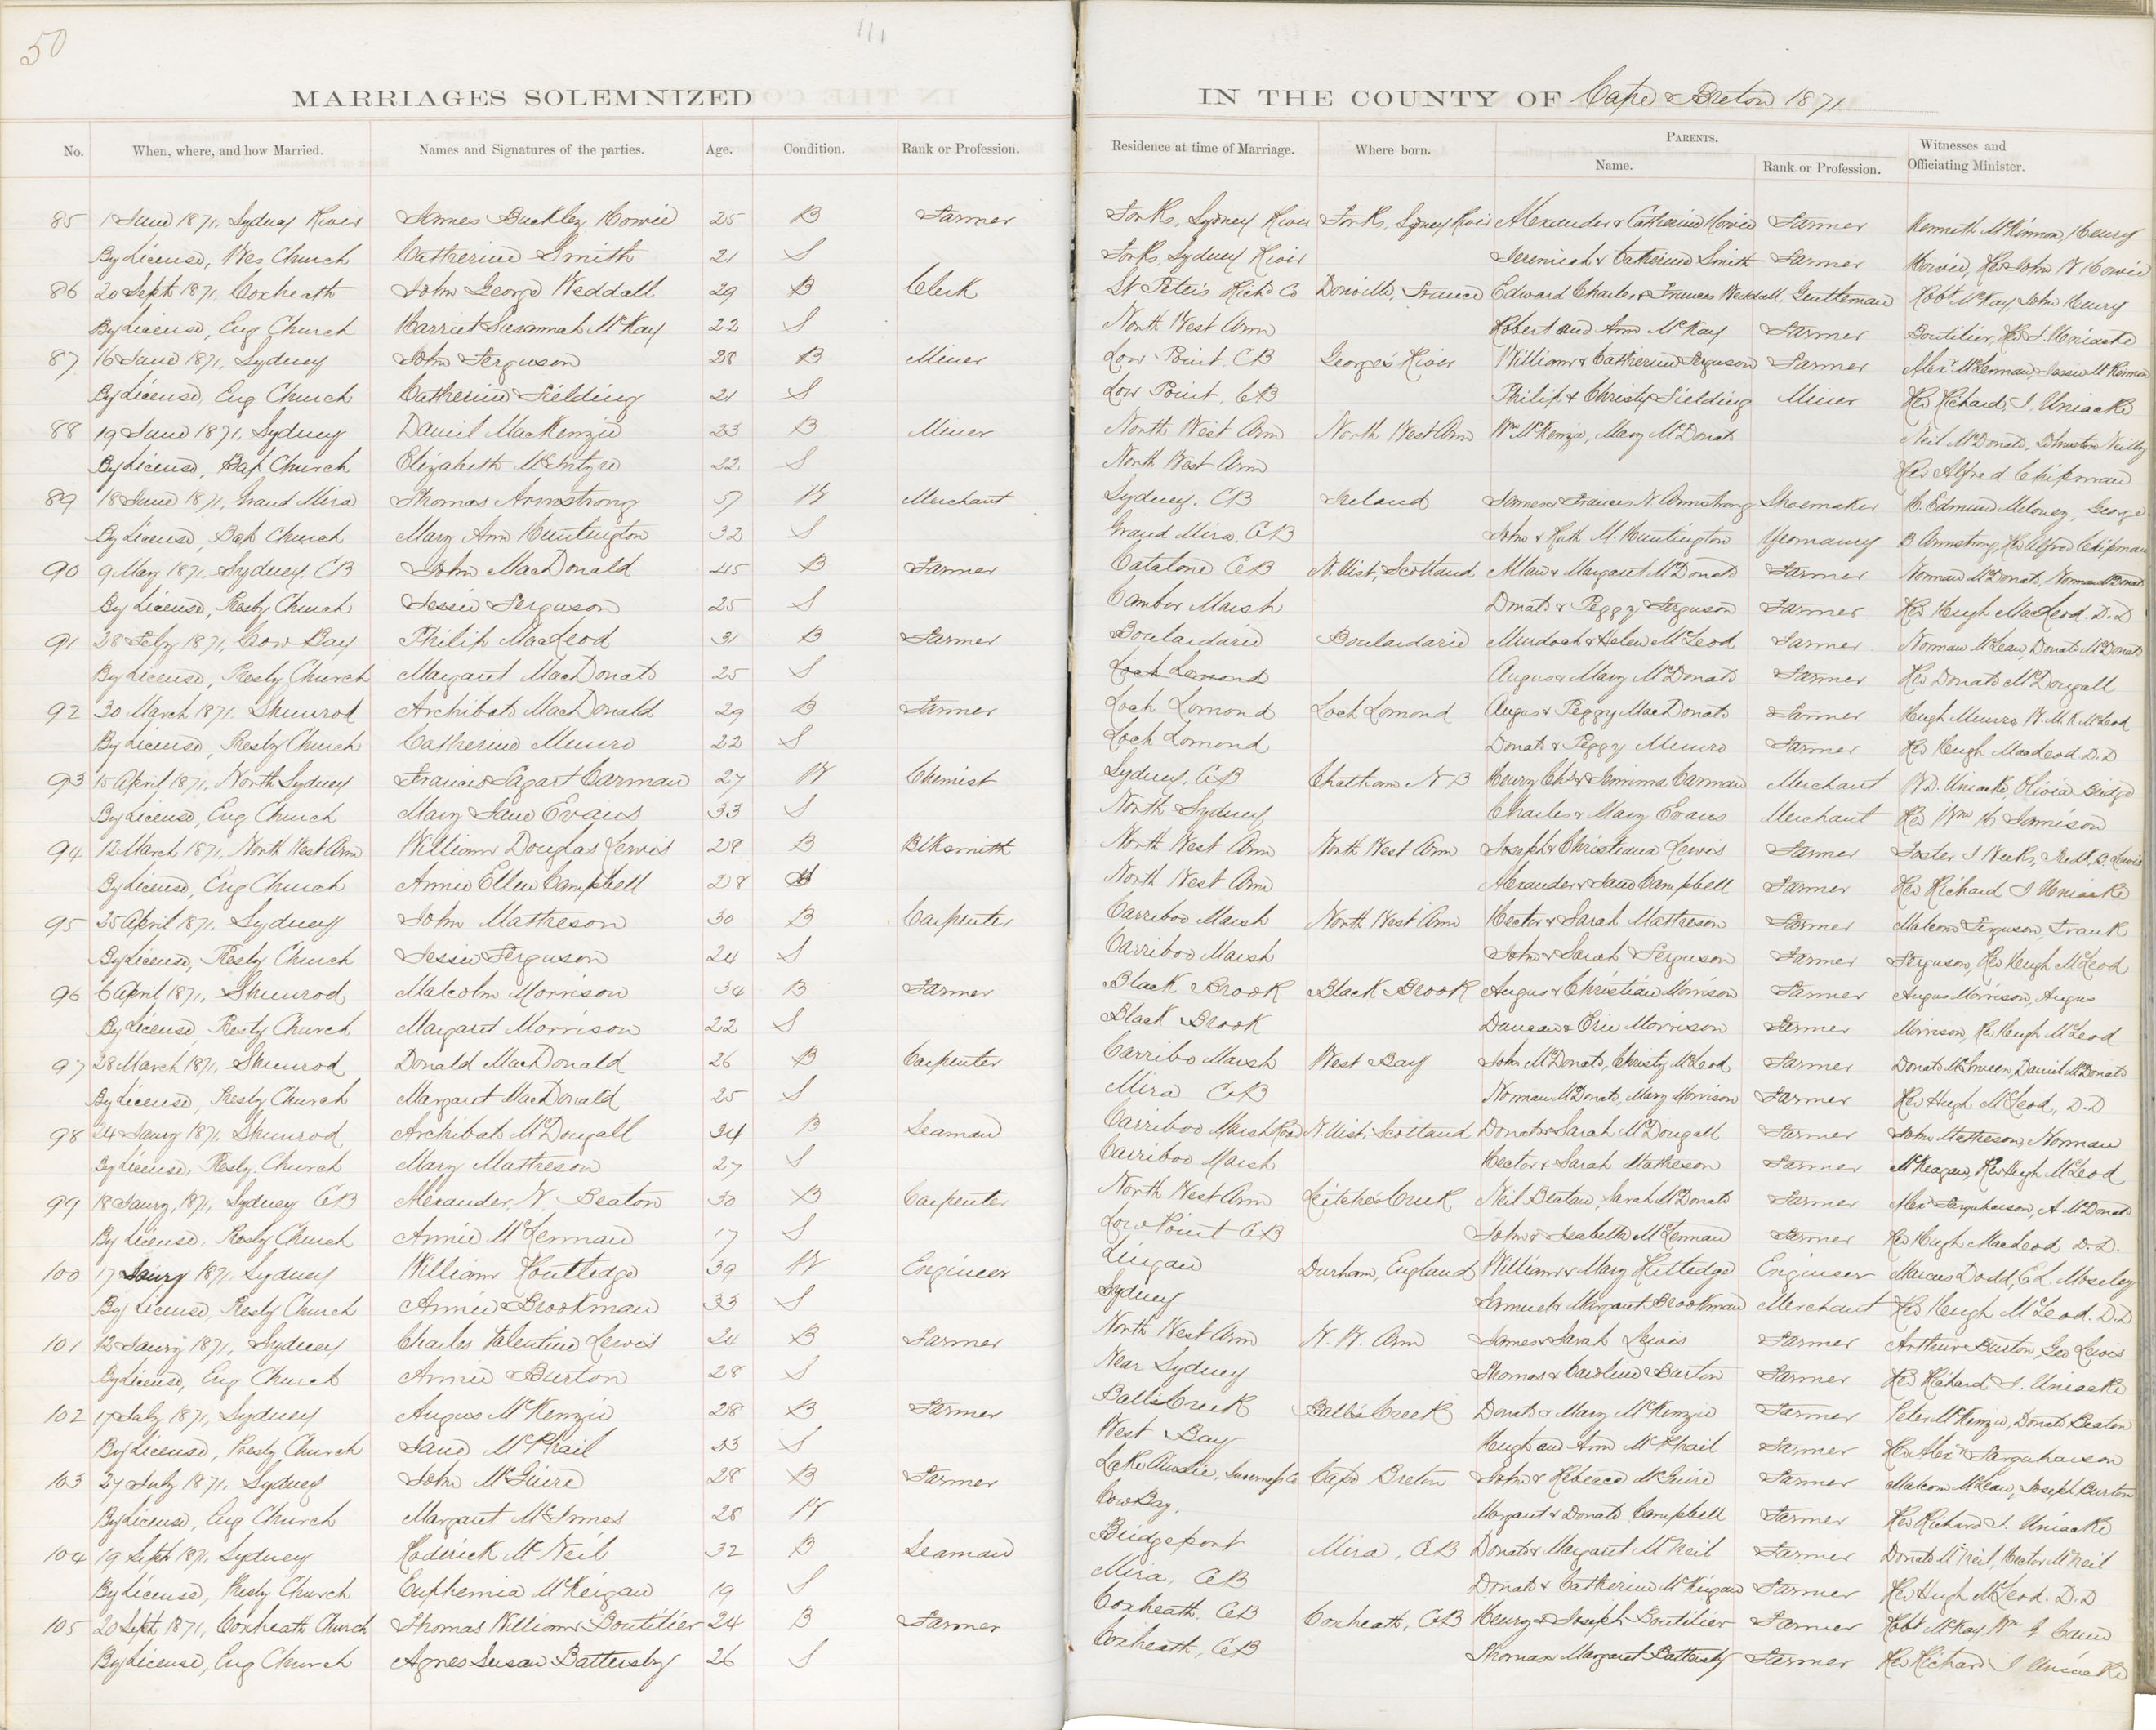 50
111
MARRIAGES SOLEMNIZED IN THE COUNTY OF Cape Breton 1871
No. When, where, and how Married. Names and Signatures of the parties. Age. Condition. Rank or Profession. Residence at time of Marriage. Where born. PARENTS. Name. Rank or Profession. Witnesses and Officiating Minister.
85 1 June 1871, Sydney River James Buckley Howie 25 B Farmer Forks, Sydney River Forks, Sydney River Alexander & Catherine Howie Farmer Kenneth McKinnon, Henry
By License, Wes Church Catherine Smith 21 S Forks, Sydney River Jeremiah & Catherine Smith Farmer Howie, Rev John W Howie
86 20 Sept 1871, Coxheath John George Weddall 29 B Clerk St Peter's Richd Co France Edward Charles & Frances Weddall Gentleman Robt McKay, John Henry
By License, Eng Church Harriet Susannah McKay 22 S North West Arm Robert and Ann McKay Farmer Boutilier, Rev Uniacke
87 16 June 1871, Sydney John Ferguson 28 B Miner Low Point, CB George's River William & Catherine Ferguson Farmer Alexr McLennan, Jessie McKinnon
By License, Eng Church Catherine Fielding 21 S Low Point, CB Philip & Christy Fielding Miner Rev Richard J. Uniacke
88 19 June 1871, Sydney Daniel MacKenzie 23 B Miner North West Arm North West Arm Wm McKenzie, Mary McDonald Neil McDonald, Johnston
By License, Bap Church Elizabeth McIntyre 22 S North West Arm Rev Alfred Chipman
89 18 June 1871, Grand Mira Thomas Armstrong 57 W Merchant Sydney, CB Ireland James & Frances N Armstrong Shoemaker C. Edmund Meloney, George
By License, Bap Church Mary Ann Huntington 32 S Grand Mira, CB John & Ruth M. Huntington Yeomanry B Armstrong, Rev Alfred Chipman
90 9 May 1871, Sydney, CB John MacDonald 45 B Farmer Catalone CB N. Uist, Scotland Allan & Margaret McDonald Farmer Norman McDonald, Norman McDonald
By License, Presby Church Jessie Ferguson 25 S Marsh Donald & Peggy Ferguson Farmer Rev Hugh MacLeod, D.D
91 28 Feby 1871, Cow Bay Philip MacLeod 31 B Farmer Boulardarie Boulardarie Murdoch & Helen McLeod Farmer Norman McLean, Donald McDonald
By License, Presby Church Margaret MacDonald 25 S Loch Lomond Angus & Mary McDonald Farmer Rev Donald McDougall
92 30 March 1871, Shunrod Archibald MacDonald 29 B Farmer Loch Lomond Loch Lomond Angus & Peggy MacDonald Farmer Hugh Munro, W. McK McLeod
By License, Presby Church Catherine Munro 22 S Loch Lomond Donald & Peggy Munro Farmer Rev Hugh MacLeod D.D
93 15 April 1871, North Sydney Francis Carman 27 W Chemist Sydney, CB Chatham NB Henry & Jemima Carman Merchant W. D. Uniacke, Olivia Bridge
By License, Eng Church Mary Jane Evans 33 S North Sydney Charles & Mary Evans Merchant Rev Wm H Jamison
94 12 March 1871, North West Arm William Douglas Lewis 28 B Blksmith North West Arm North West Arm Joseph & Christiana Lewis Farmer Foster J Weeks, Fredk B. Lewis
By License, Eng Church Annie Ellen Campbell 28 S North West Arm Alexander & Jane Campbell Farmer Rev Richard J Uniacke
95 25 April 1871, Sydney John Matheson 30 B Carpenter Carriboo Marsh North West Arm Hector & Sarah Matheson Farmer Malcom Ferguson, Frank
By License, Presby Church Jessie Ferguson 24 S Carriboo Marsh John & Sarah Ferguson Farmer Ferguson, Rev Hugh McLeod
96 6 April 1871, Shunrod Malcolm Morrison 34 B Farmer Black Brook Black Brook Angus & Christian Morrison Farmer Angus Morrison, Angus
By License, Presby Church Margaret Morrison 22 S Black Brook Duncan & Morrison Farmer Morrison, Rev Hugh McLeod
97 28 March 1871, Shunrod Donald MacDonald 26 B Carpenter Carribo Marsh West Bay John McDonald, Christy McLeod Farmer Donald McQueen, Daniel McDonald
By License, Presby Church Margaret MacDonald 25 S Mira CB Norman McDonald, Mary Morrison Farmer Rev Hugh McLeod, D.D
98 24 Jany 1871, Shunrod Archibald McDougall 34 B Seaman Carriboo Marsh Road N. Uist, Scotland Donald & Sarah McDougall Farmer John Matheson, Norman
By License, Presby. Church Mary Matheson 27 S Carriboo Marsh Hector & Sarah Matheson Farmer McKeagan, Rev Hugh McLeod
99 18 Jany, 1871, Sydney CB Alexander, N. Beaton 30 B Carpenter North West Arm Leitches Creek Neil Beaton, Sarah McDonald Farmer Alexr Farquharson, A McDonald
By License, Presby Church Annie McLennan 17 S Low Point CB John & Isabella McLennan Farmer Rev Hugh MacLeod D.D.
100 17 Jany 1871, Sydney William Routledge 39 W Engineer Lingan Durham, England William & Mary Rutledge Engineer Marcus Dodd, C L. Moseley
By License, Presby Church Annie Brookman 33 S Sydney Samuel & Margaret Brookman Merchant Rev Hugh McLeod. D.D
101 12 Jany 1871, Sydney Charles Valentine Lewis 24 B Farmer North West Arm N. W. Arm James & Sarah Lewis Farmer Arthur Burton, Geo Lewis
By License, Eng Church Annie Burton 28 S Near Sydney Thomas & Caroline Burton Farmer Rev Richard J. Uniacke
102 17 July 1871, Sydney Angus McKenzie 28 B Farmer Balls Creek Balls Creek Donald & Mary McKenzie Farmer Peter McKenzie, Donald Beaton
By License, Presby Church Jane McPhail 33 S West Bay Hugh and Ann McPhail Farmer Rev Alexr Farquharson
103 27 July 1871, Sydney John McGuire 28 B Farmer Lake Ainslie, Inverness Co Cape Breton John & Rebecca McGuire Farmer Malcom McLean, Joseph Burton
By License, Eng Church Margaret McInnes 28 W Cow Bay, Margaret & Donald Campbell Farmer Rev Richard J. Uniacke
104 19 Sept 1871, Sydney Roderick McNeil 32 B Seaman Bridgeport Mira, CB Donald & Margaret McNeil Farmer Donald McNeil, Hector McNeil
By License, Presby Church Euphemia McKeigan 19 S Mira, CB Donald & Catherine McKeigan Farmer Rev Hugh McLeod. D.D
105 20 Sept 1871, Coxheath Church Thomas William Boutilier 24 B Farmer Coxheath, CB Coxheath, CB Henry & Joseph Boutilier Farmer Robt McKay, Wm
By License, Eng Church Agnes Susan Battersby 26 S Coxheath, CB Thomas Margaret Battersby Farmer Rev Richard J Uniacke